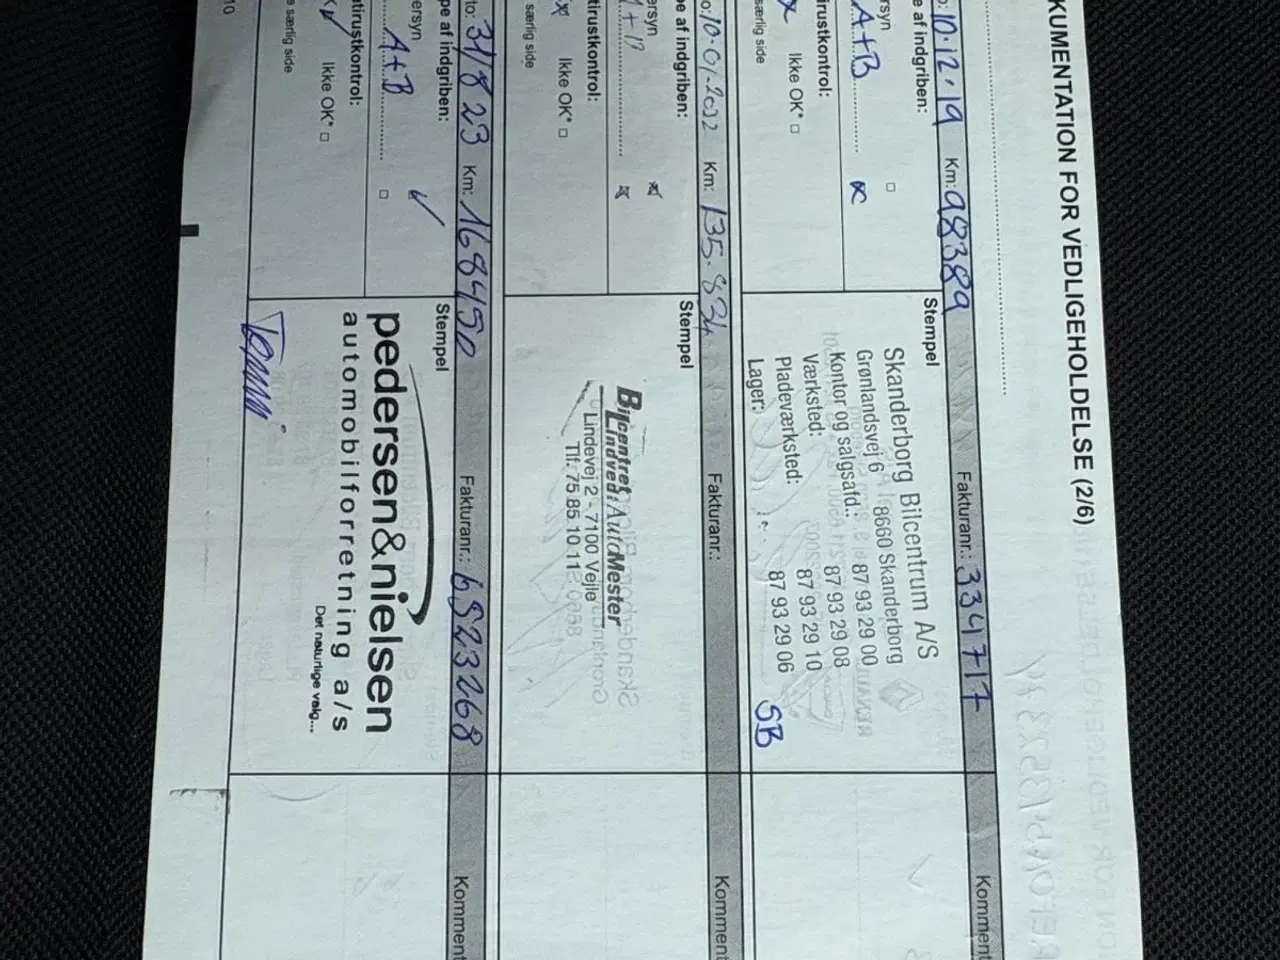 KUMENTATION FOR VEDLIGEHOLDELSE (2/6)
10.12.19 Km: 98389 Fakturanr.: 334717 Komment
pe af indgriben:
ersyn
A+B
irustkontrol:
Ikke OK*
særlig side
Stempel
Skanderborg Bilcentrum A/S
Grønlandsvej 6 8660 Skanderborg
Kontor og salgsafd.: 87 93 29 00
87 93 29 08
Værksted: 87 93 29 10
Pladeværksted: 87 93 29 06
Lager:
SB
to: 10.01.2022 Km: 135.834 Fakturanr.: Komment
pe af indgriben:
ersyn
tirustkontrol:
Ikke OK*
særlig side
Stempel
Bilcentret
Lindved: AutoMester
Lindevej 2 - 7100 Vejle
Tlf. 75 85 10 11
to: 31/8 23 Km: 168450 Fakturanr.: 6523268 Komment
pe af indgriben:
ersyn
A+B
tirustkontrol:
Ikke OK*
e særlig side
Stempel
pedersen&nielsen
automobilforretning a/s
Det naturlige valg...
10